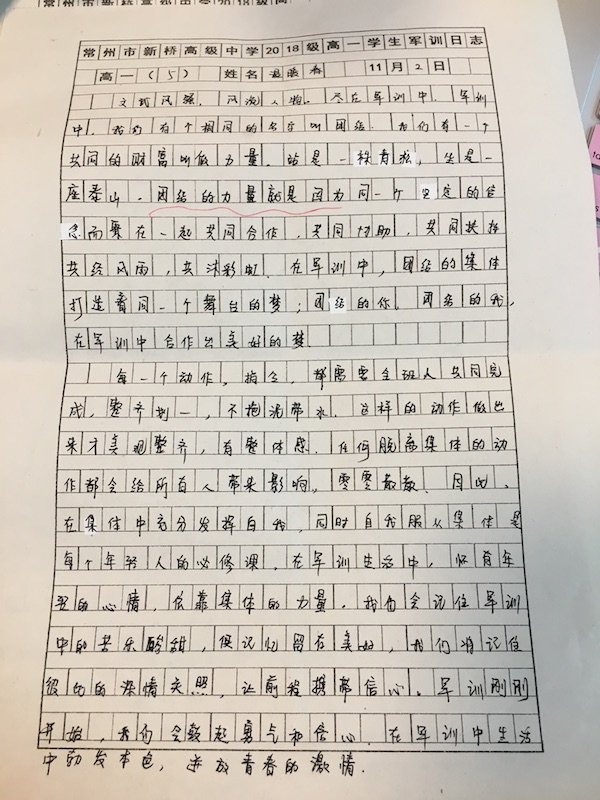 常州市新桥高级中学2018级高一学生军训日志
高一（5） 姓名 11月2日
文武风骚，风流人物。尽在军训中。军训
中，我们有个相同的名字叫团结。我们有一个
共同的财富叫做力量。站是一棵青松，坐是一
座泰山。团结的力量就是因为同一个坚定的信
念而聚在一起共同合作，共同切助，共同扶持
共经风雨，共沐彩虹。在军训中，团结的集体
打造着同一个舞台的梦；团结的你。团结的我，
在军训中合作出美好的梦.
每一个动作，指令，都需要全班人共同完
成，整齐划一，不拖泥带水。这样的动作做出
来才美观整齐，有整体感。任何脱离集体的动
作都会给所有人带来影响。零零散散。因此。
在集体中充分发挥自我，同时自我服从集体是
每个年轻人的必修课，在军训生活中，怀有年
轻的心情，依靠集体的力量。我们会记住军训
中的苦乐酸甜，使记忆留在美好，我们将记住
彼此的深情关照，让前程携带信心。军训刚刚
开始，我们会鼓起勇气和信心。在军训中生活
中勃发本色，迸放青春的激情.